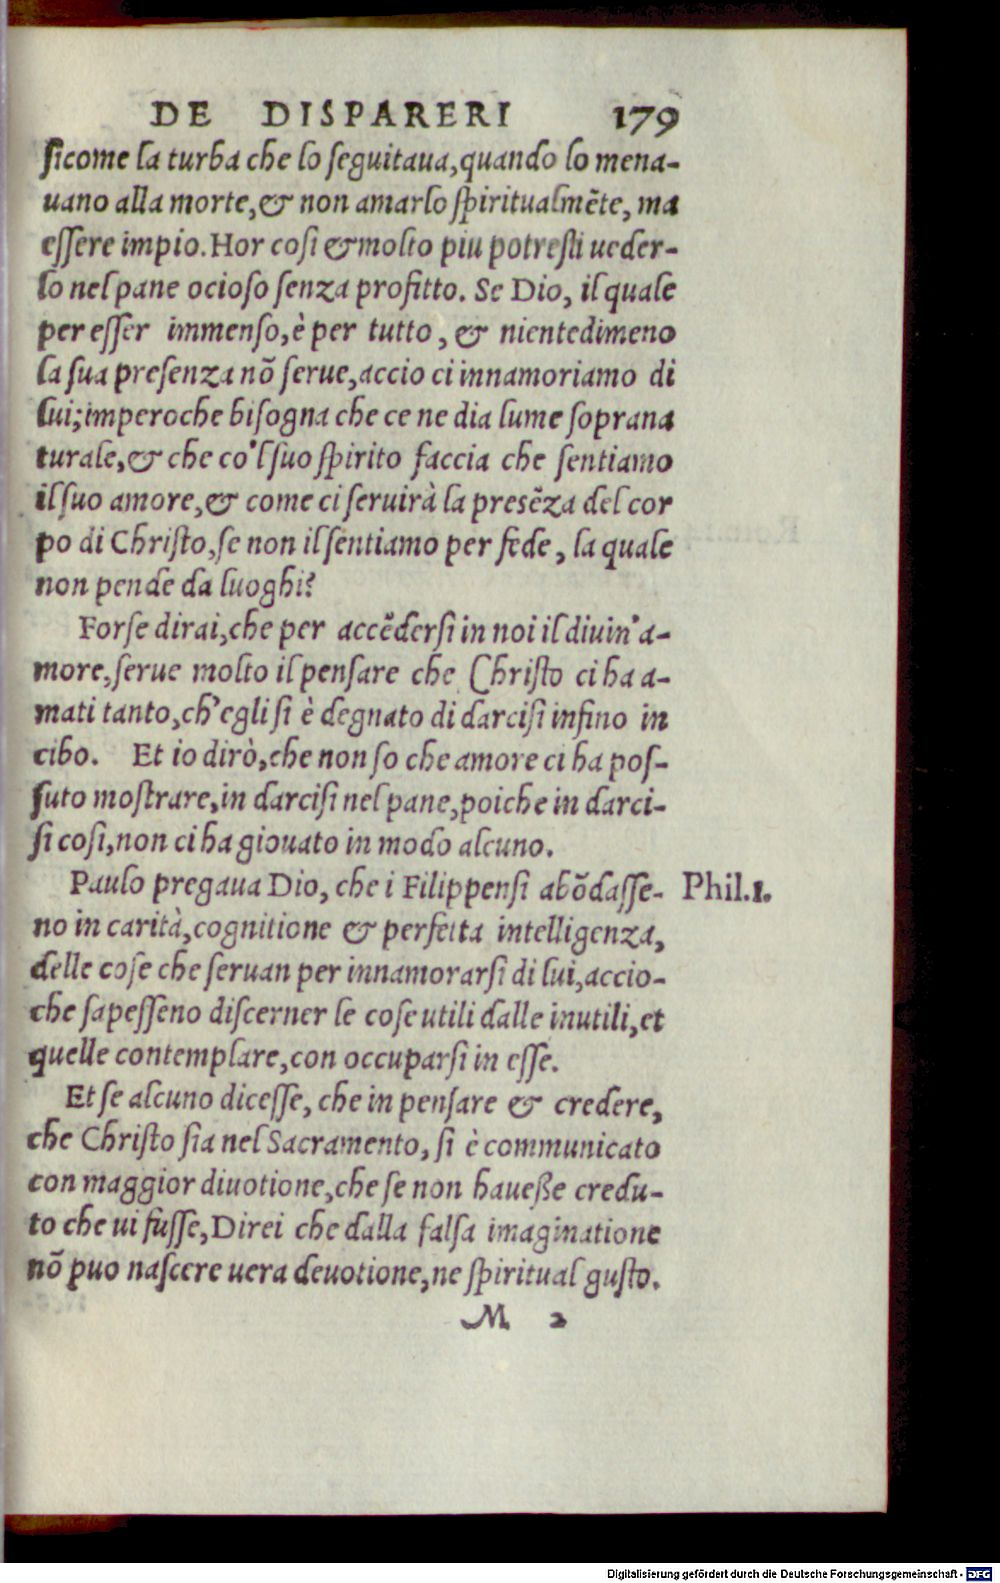 DE DISPARERI 179
ſicome la turba che lo ſeguitaua, quando lo mena-
uano alla morte, & non amarlo ſpiritualmẽte, ma
eſſere impio. Hor coſi & molto piu potreſti ueder-
lo nel pane ocioſo ſenza profitto. Se Dio, il quale
per eſſer immenſo, è per tutto, & nientedimeno
la ſua preſenza nõ ſerue, accio ci innamoriamo di
lui; imperoche biſogna che ce ne dia lume ſoprana
turale, & che co'l ſuo ſpirito faccia che ſentiamo
il ſuo amore, & come ci ſeruirà la preſẽza del cor
po di Chriſto, ſe non il ſentiamo per fede, la quale
non pende da luoghi?
Forſe dirai, che per accẽderſi in noi il diuin'a-
more, ſerue molto il penſare che Chriſto ci ha a-
mati tanto, ch'egli ſi è degnato di darciſi infino in
cibo. Et io dirò, che non ſo che amore ci ha poſ-
ſuto moſtrare, in darciſi nel pane, poiche in darci-
ſi coſi, non ci ha giouato in modo alcuno.
Paulo pregaua Dio, che i Filippenſi abõdaſſe- Phil.1.
no in carità, cognitione & perfetta intelligenza,
delle coſe che ſeruan per innamorarſi di lui, accio-
che ſapeſſeno diſcerner le coſe utili dalle inutili, et
quelle contemplare, con occuparſi in eſſe.
Et ſe alcuno diceſſe, che in penſare & credere,
che Chriſto ſia nel Sacramento, ſi è communicato
con maggior diuotione, che ſe non haueße credu-
to che ui fuſſe, Direi che dalla falſa imaginatione
nõ puo naſcere uera deuotione, ne ſpiritual guſto.
M 2
Digitalisierung gefördert durch die Deutsche Forschungsgemeinschaft - DFG